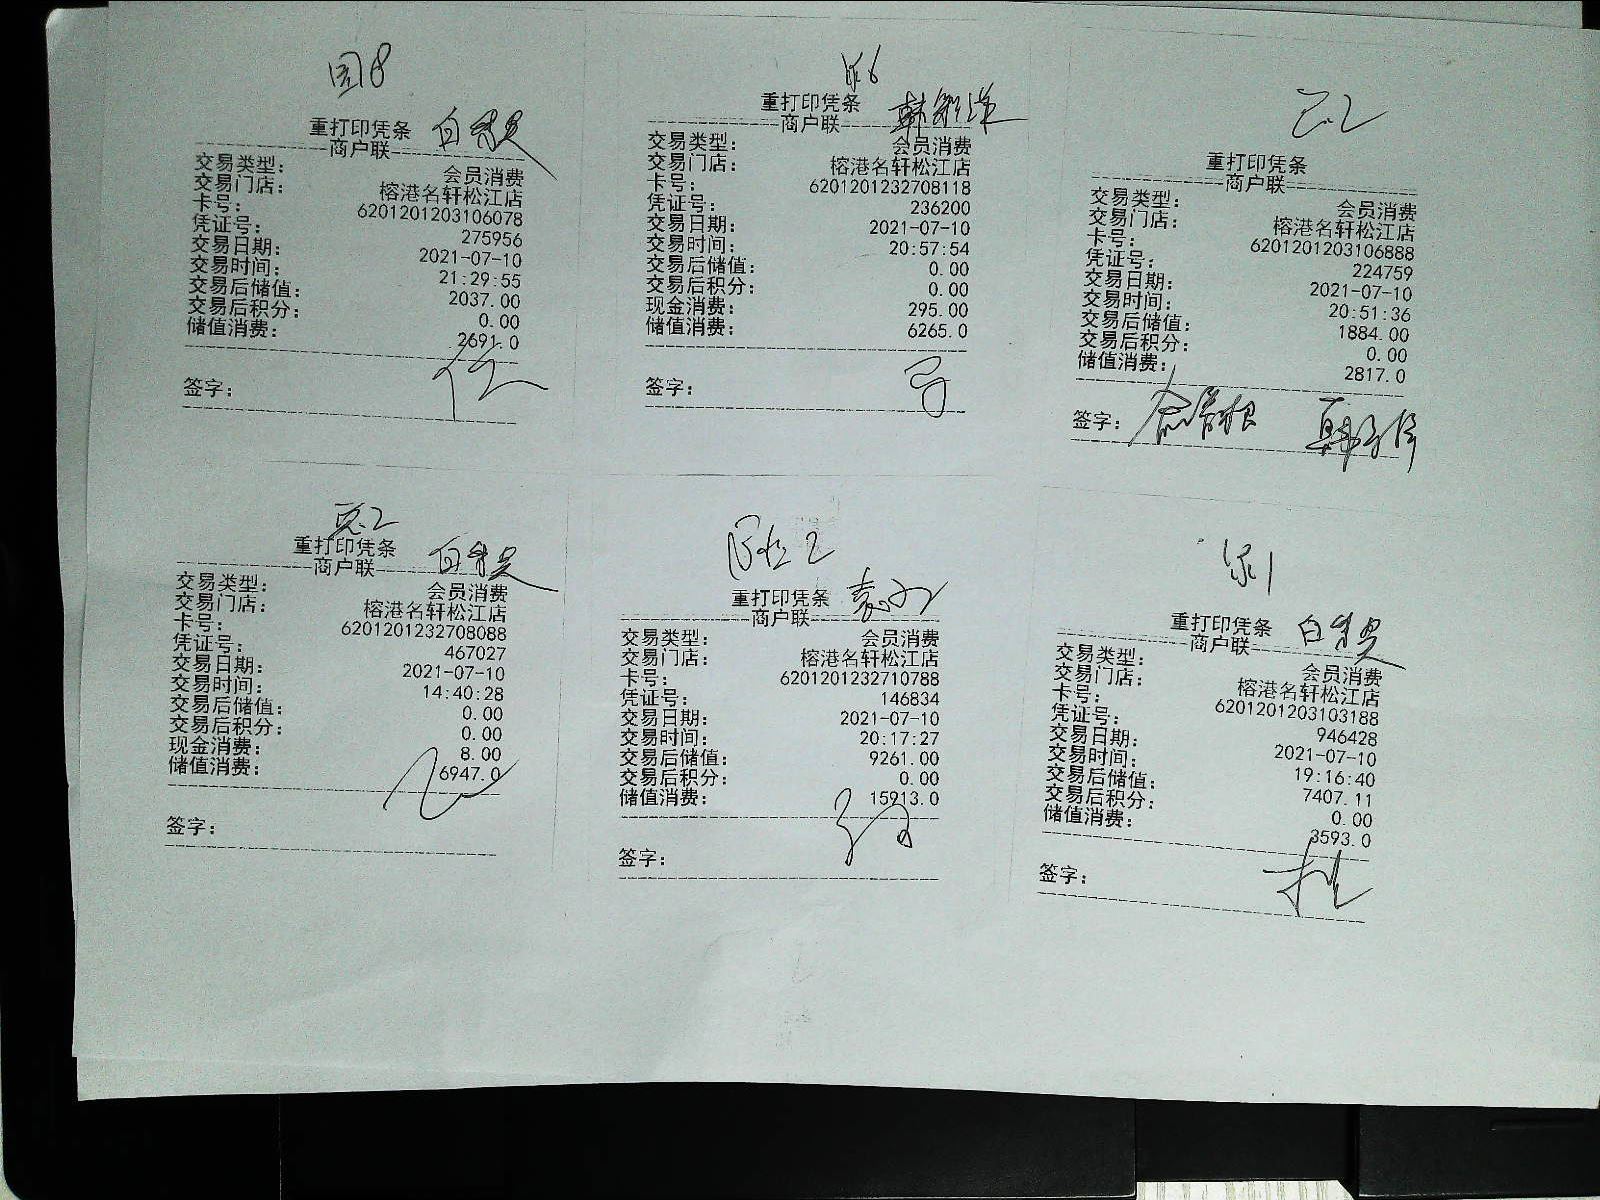 园8
重打印凭条
商户联
交易类型: 会员消费
交易门店: 榕港名轩松江店
卡号: 6201201203106078
凭证号: 275956
交易日期: 2021-07-10
交易时间: 21:29:55
交易后储值: 2037.00
交易后积分: 0.00
储值消费: 2691.0
签字:
重打印凭条
商户联
交易类型: 会员消费
交易门店: 榕港名轩松江店
卡号: 6201201232708118
凭证号: 236200
交易日期: 2021-07-10
交易时间: 20:57:54
交易后储值: 0.00
交易后积分: 0.00
现金消费: 295.00
储值消费: 6265.0
签字:
重打印凭条
商户联
交易类型: 会员消费
交易门店: 榕港名轩松江店
卡号: 6201201203106888
凭证号: 224759
交易日期: 2021-07-10
交易时间: 20:51:36
交易后储值: 1884.00
交易后积分: 0.00
储值消费: 2817.0
签字:
重打印凭条
商户联
交易类型: 会员消费
交易门店: 榕港名轩松江店
卡号: 6201201232708088
凭证号: 467027
交易日期: 2021-07-10
交易时间: 14:40:28
交易后储值: 0.00
交易后积分: 0.00
现金消费: 8.00
储值消费: 6947.0
签字:
重打印凭条
商户联
交易类型: 会员消费
交易门店: 榕港名轩松江店
卡号: 6201201232710788
凭证号: 146834
交易日期: 2021-07-10
交易时间: 20:17:27
交易后储值: 9261.00
交易后积分: 0.00
储值消费: 15913.0
签字:
重打印凭条
商户联
交易类型: 会员消费
交易门店: 榕港名轩松江店
卡号: 6201201203103188
凭证号: 946428
交易日期: 2021-07-10
交易时间: 19:16:40
交易后储值: 7407.11
交易后积分: 0.00
储值消费: 3593.0
签字: